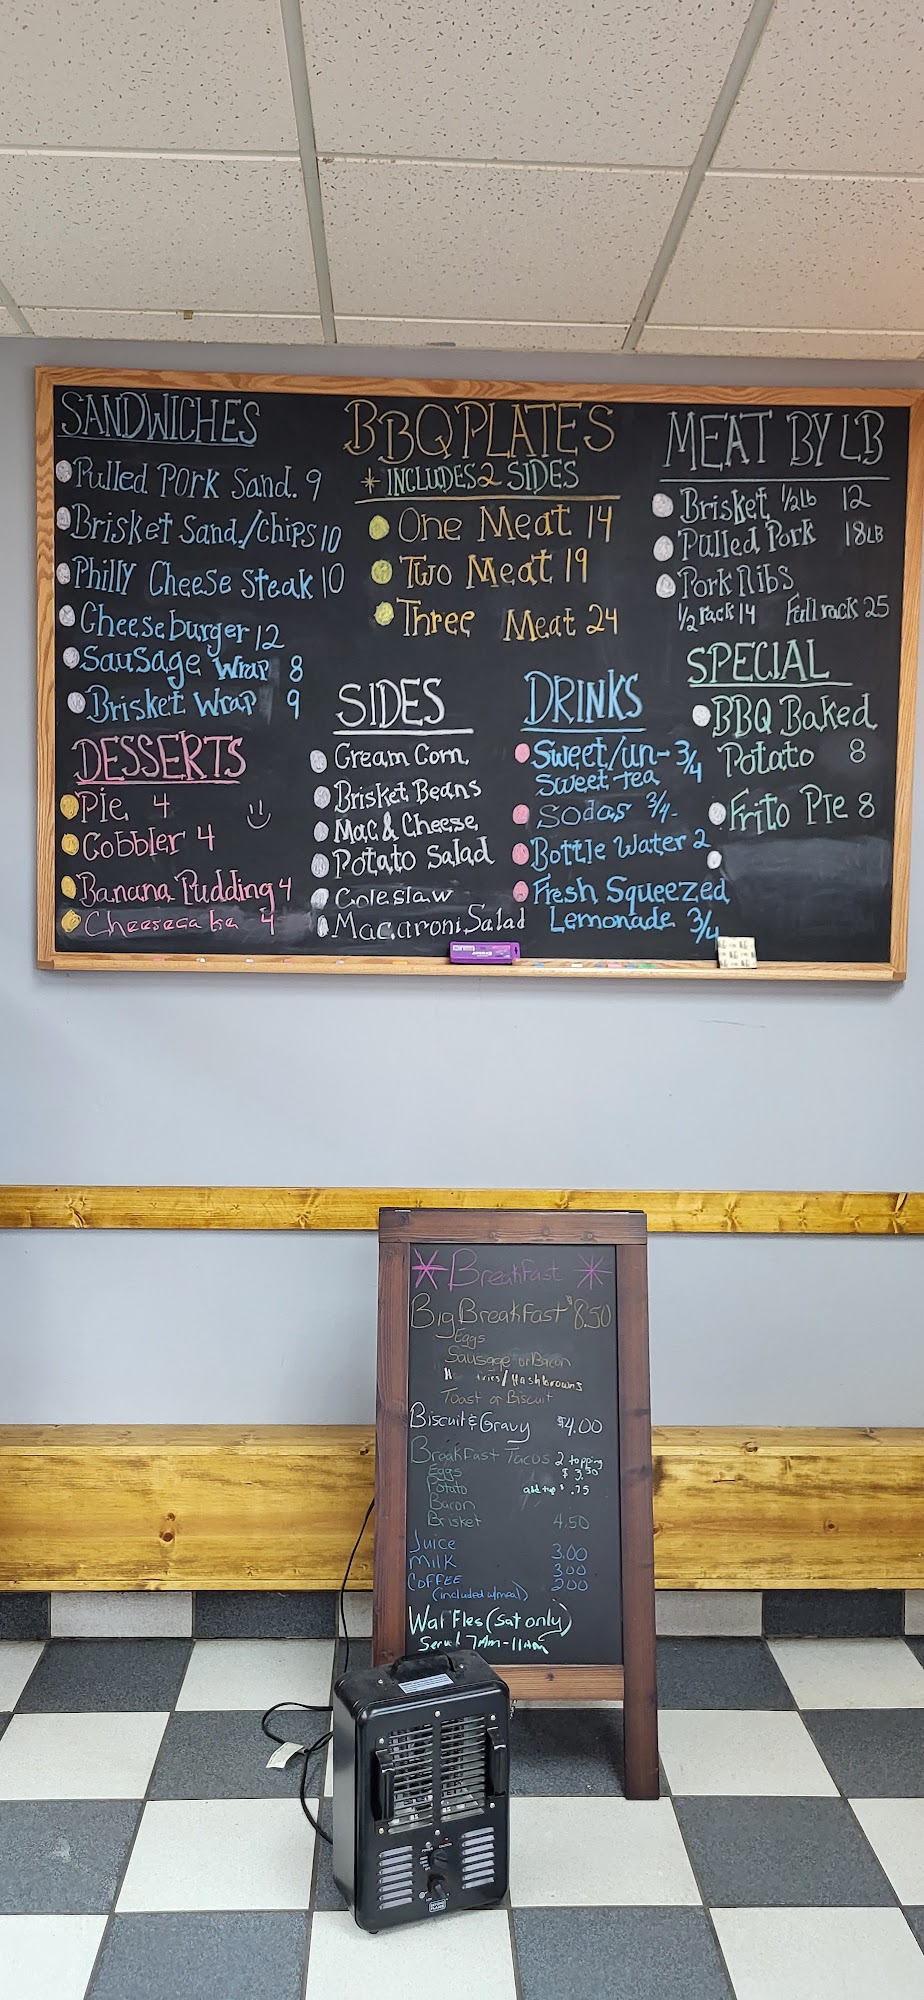 SANDWICHES
Pulled Pork Sand. 9
Brisket Sand./Chips 10
Philly Cheese Steak 10
Cheeseburger 12
Sausage Wrap 8
Brisket Wrap 9
DESSERTS
Pie 4
Cobbler 4
Banana Pudding 4
Cheesecake 4
BBQ PLATES
* INCLUDES 2 SIDES
One Meat 14
Two Meat 19
Three Meat 24
SIDES
Cream Corn
Brisket Beans
Mac & Cheese
Potato Salad
Coleslaw
Macaroni Salad
DRINKS
Sweet/un- 3/4
Sweet Tea
Sodas 3/4
Bottle Water 2
Fresh Squeezed
Lemonade 3/4
MEAT BY LB
Brisket 1/2lb 12
Pulled Pork 18LB
Pork Ribs
1/2 rack 14 Full rack 25
SPECIAL
BBQ Baked
Potato 8
Frito Pie 8
* Breakfast *
Big Breakfast $8.50
Eggs
Sausage or Bacon
/Hashbrowns
Toast or Biscuit
Biscuit & Gravy $4.00
Breakfast Tacos 2 topping
Eggs $3.50
Potato .75
Bacon
Brisket 4.50
Juice 3.00
Milk 3.00
Coffee 2.00
(included w/meal)
Waffles (Sat only)
7Am-11Am